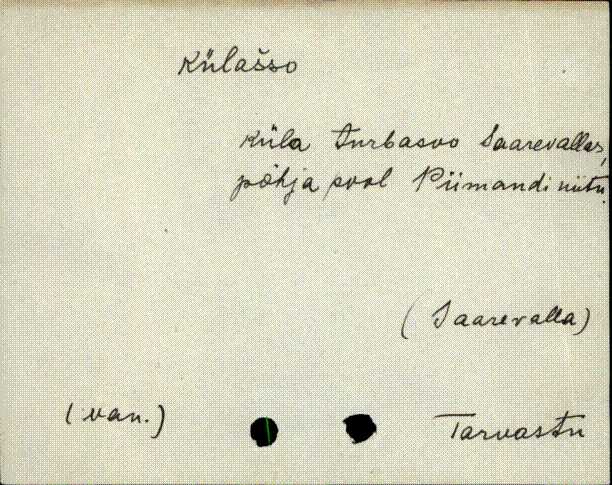 Külašso
Küla turbasoo Saarevallas,
põhja pool Piimandi niitu.
(Saarevalla)
(van.)
Tarvastu